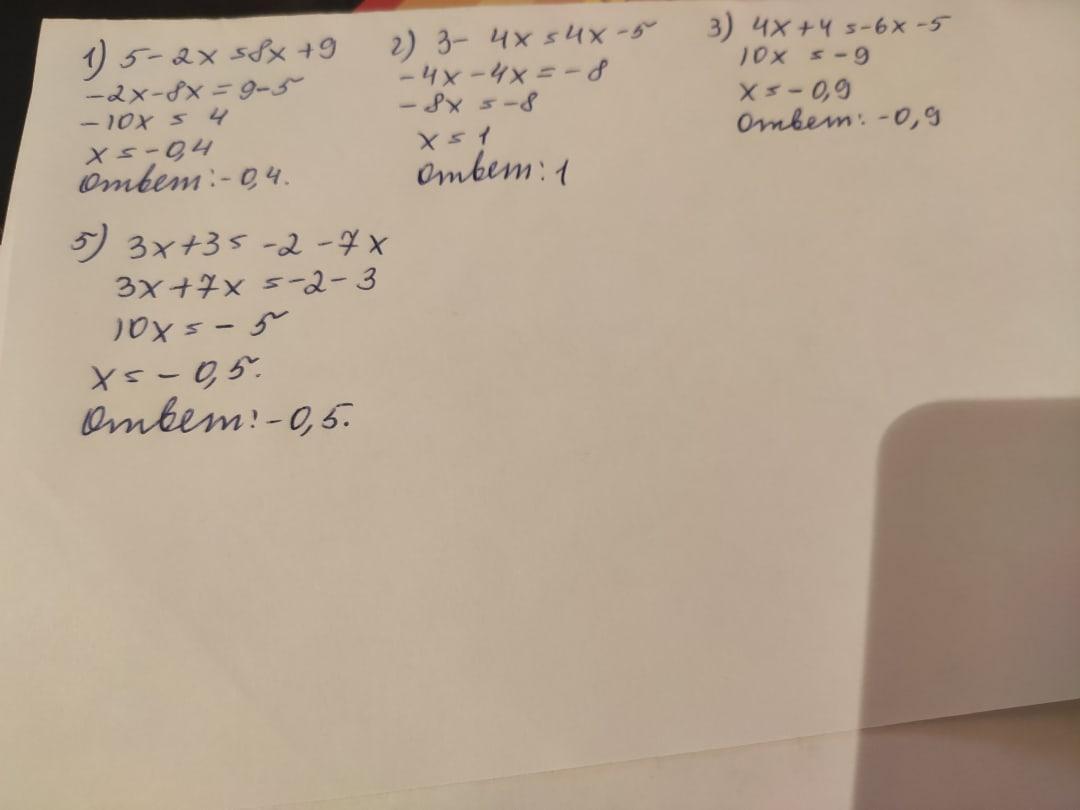 1) 5 - 2x = 8x + 9
-2x - 8x = 9 - 5
-10x = 4
x = -0,4
Ответ: -0,4.
2) 3 - 4x = 4x - 5
-4x - 4x = -8
-8x = -8
x = 1
Ответ: 1
3) 4x + 4 = -6x - 5
10x = -9
x = -0,9
Ответ: -0,9
5) 3x + 3 = -2 - 7x
3x + 7x = -2 - 3
10x = -5
x = -0,5.
Ответ: -0,5.